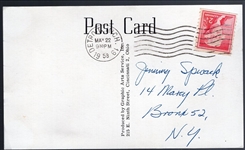 Post Card
DETROIT
MICH.
MAY 22
9 PM
1958
Produced by Graphic Arts Service, Inc.
215 E. Ninth Street, Cincinnati 2, Ohio
Jimmy Spivack
14 Marcy Pl.
Bronx 52,
N.Y.